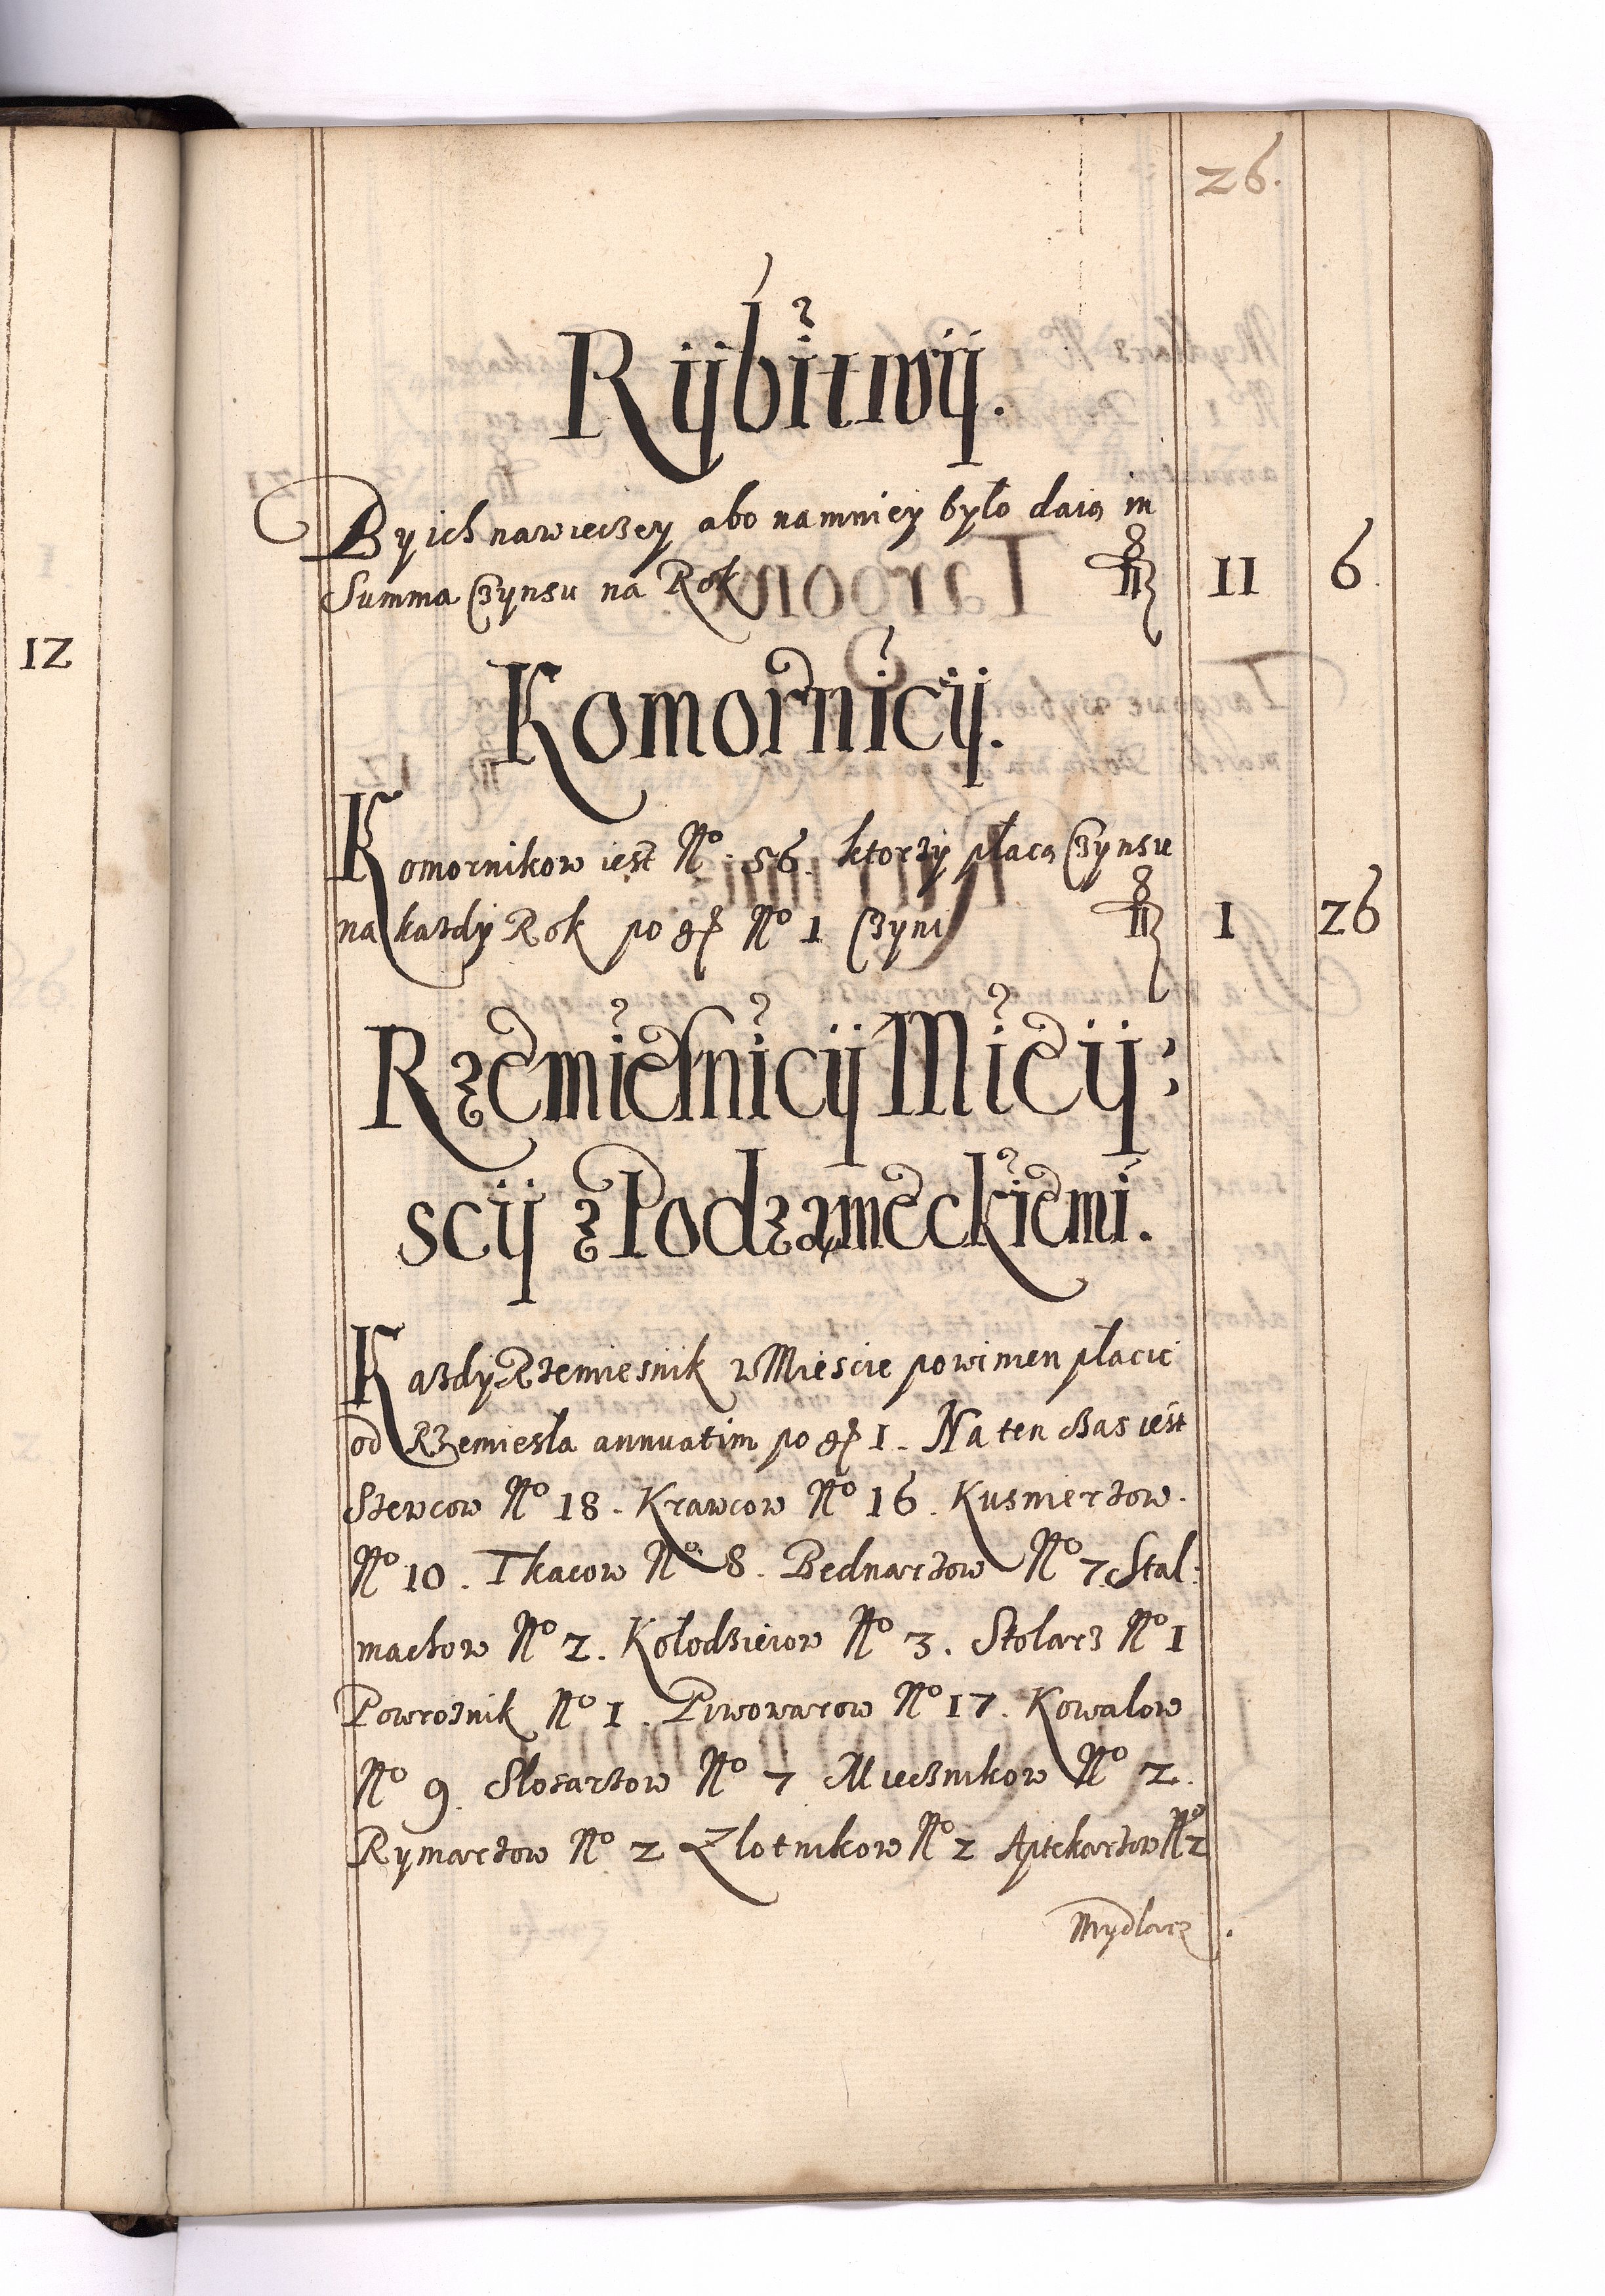 26.
Rybitwy.
By ich nawieczey abo namniey było daią in
Summa Czynsu na Rok 11 6
12
Komornicy.
Komornikow iest No. 56. ktorzy płacą Czynsu
na kazdy Rok po gr No 1 Czyni 1 26
Rzemiesnicy Miey:
scy z Podzameckiemi.
Kazdy Rzemiesnik w Miescie powinien płacic
od Rzemiesla annuatim po gr 1. Na ten czas iest
Szewcow No 18. Krawcow No 16. Kusnierzow.
No 10. Tkacow No 8. Bednarzow No 7. Stal:
machow No 2. Kołodzieiow No 3. Stolarz No 1
Powroznik No 1. Piwowarow No 17. Kowalow
No 9. Slosarzow No 7 Miecznikow No 2.
Rymarzow No 2 Zlotnikow No 2 Aptekarzow No 2
Mydlarz.